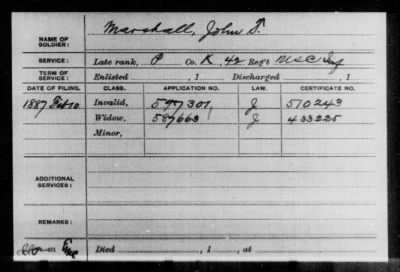 NAME OF SOLDIER: Marshall, John T.
SERVICE: Late rank, P Co. K, 42 Reg't USC Inf
TERM OF SERVICE: Enlisted , 1 Discharged , 1
DATE OF FILING. CLASS. APPLICATION NO. LAW. CERTIFICATE NO.
1887 Feb 10 Invalid, 597301 J 510243
Widow, 587663 J 433225
Minor,
ADDITIONAL SERVICES:
REMARKS:
Died , 1 , at